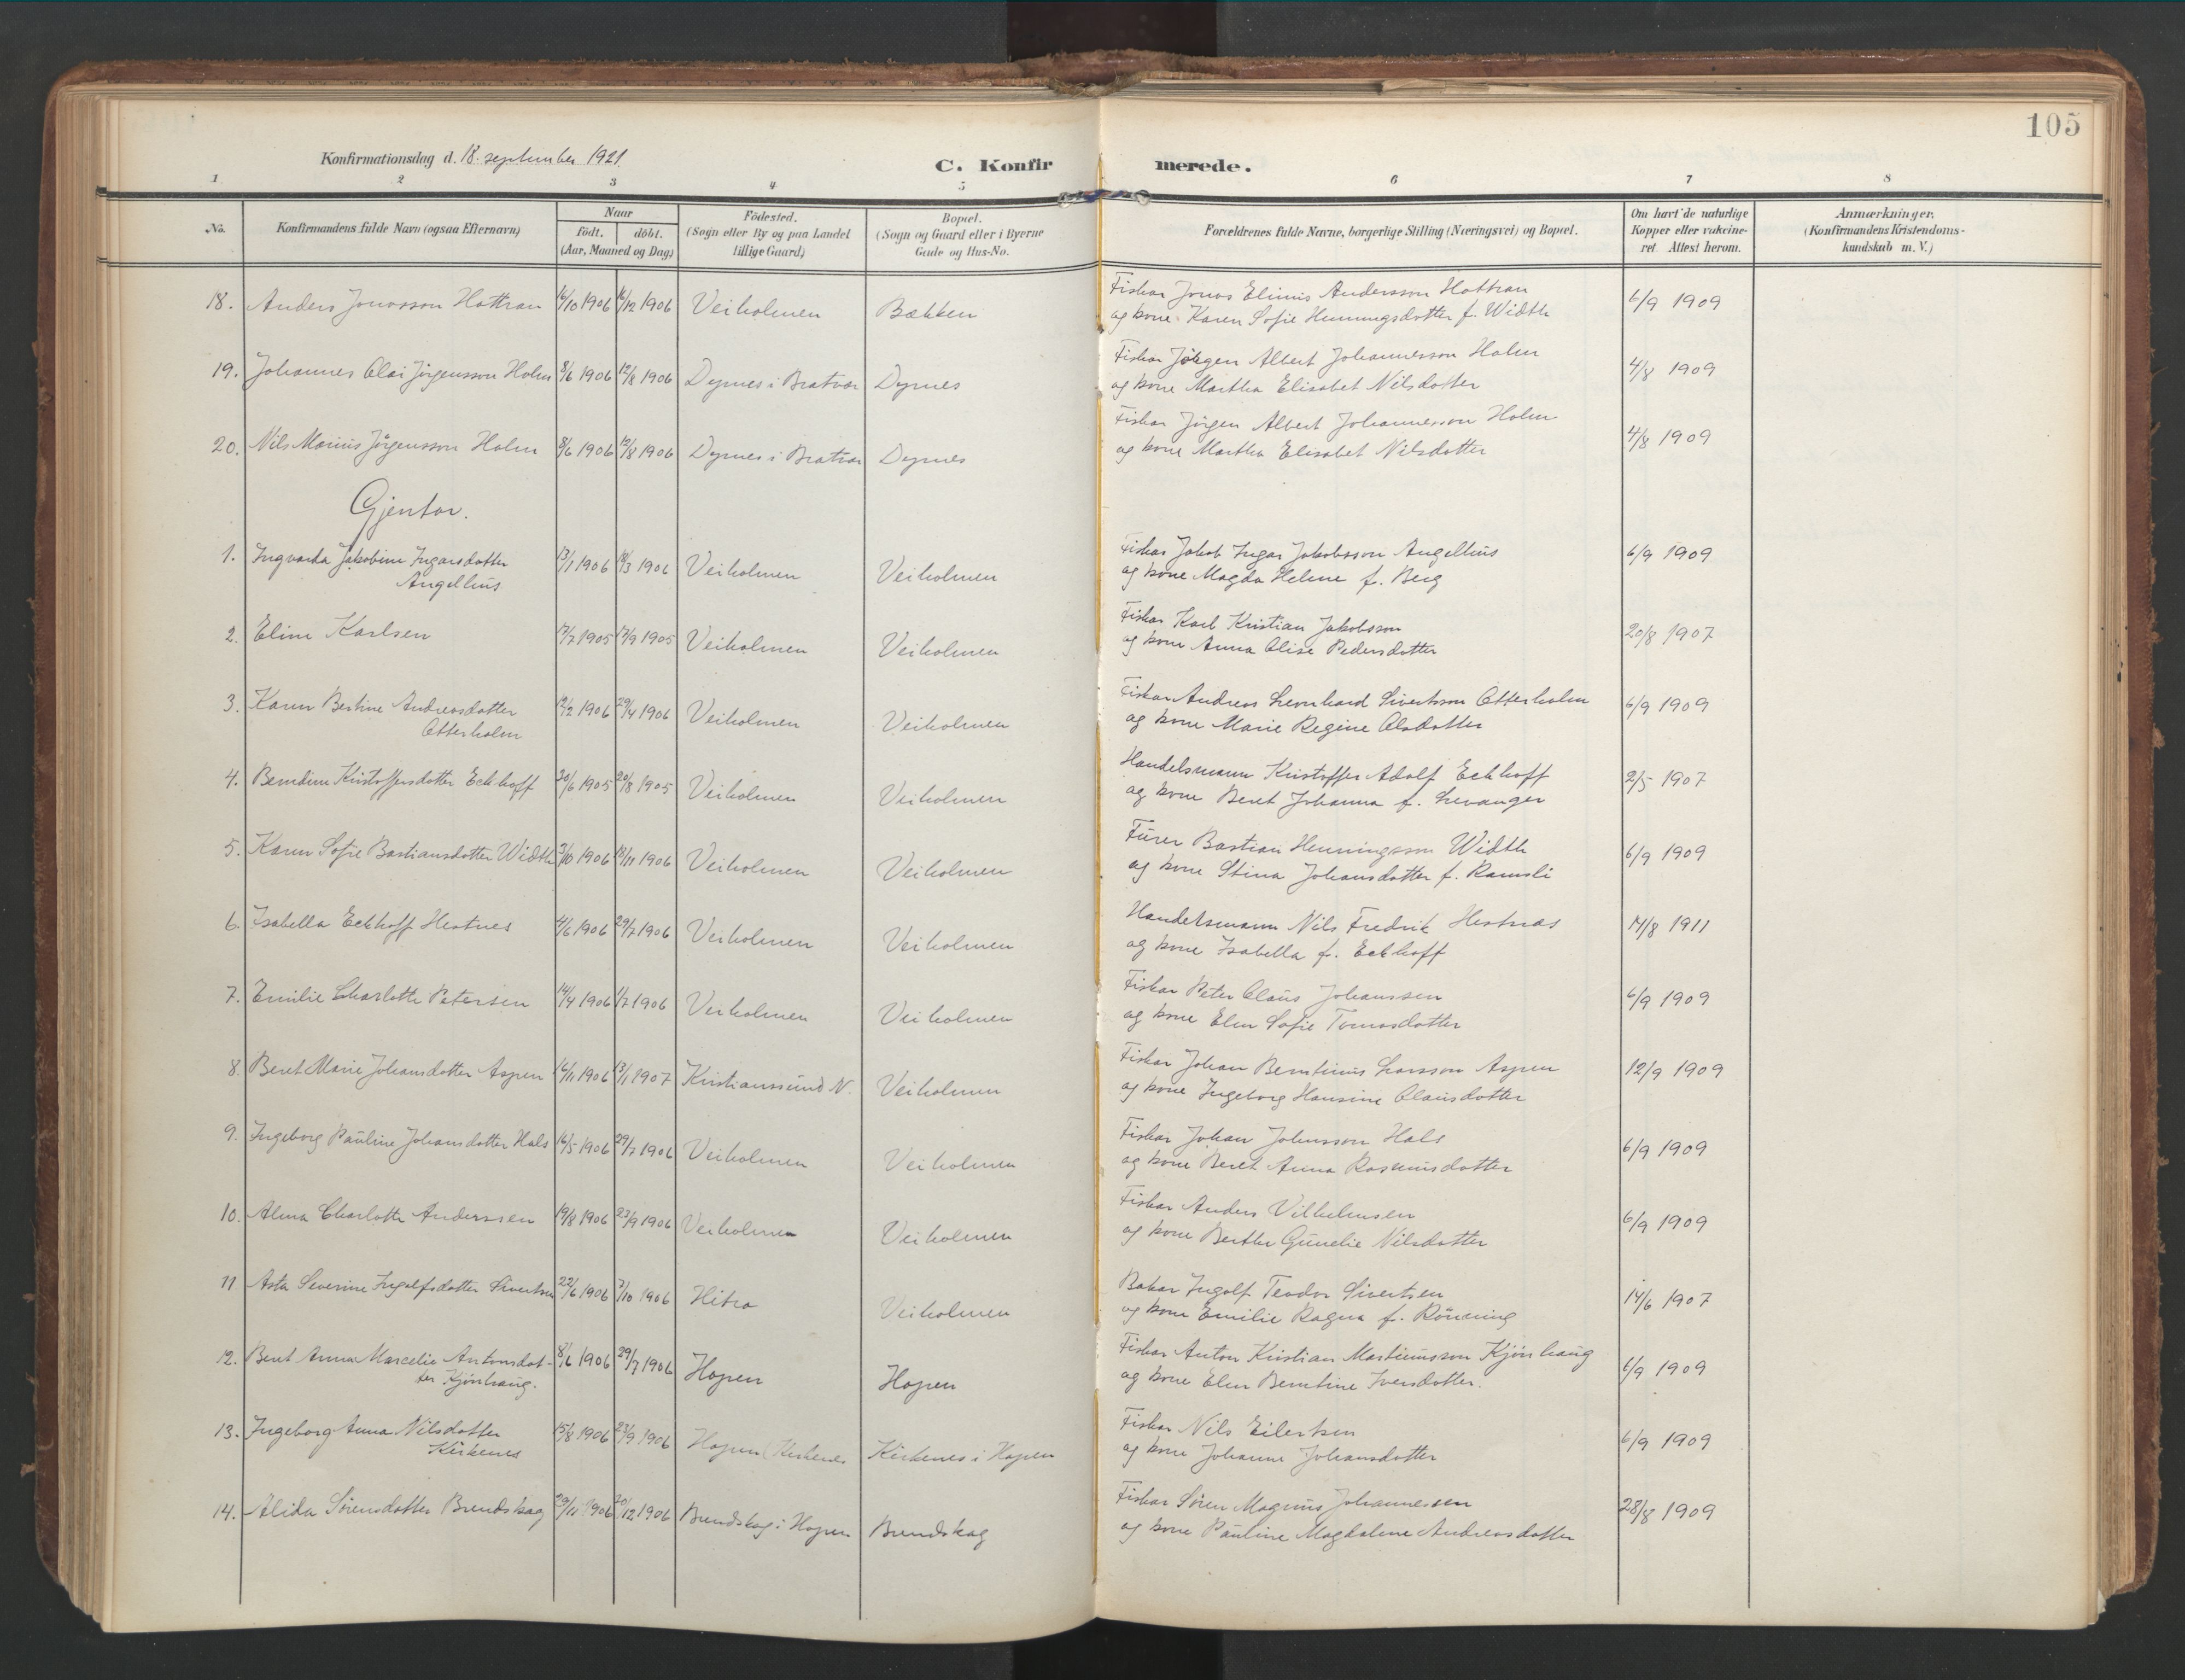 105
Konfirmationsdag d. 18. september 1921.
C. Konfirmerede.
1 2 3 4 5 6 7 8
No.
Konfirmandens fulde Navn (ogsaa Efternavn)
Naar
födt. döbt.
(Aar, Maaned og Dag)
Födested.
(Sogn eller By og paa Landet
tillige Gaard)
Bopæl.
(Sogn og Gaard eller i Byerne
Gade og Hus-No.
Forældrenes fulde Navne, borgerlige Stilling (Næringsvei) og Bopæl.
Om havt de naturlige
Kopper eller vakcine-
ret Attest herom.
Anmærkninger,
(Konfirmandens Kristendoms-
kundskab m. V.)
18. Anders Jonasson Hattran 16/10 1906 16/12 1906 Veiholmen Bækken
Fiskar Jonas Elinius Andersson Hattran
og kone Karen Sofie Henningsdotter f. Width
6/9 1909
19. Johannes Olai Jörgensson Holm 8/6 1906 12/8 1906 Dyrnes i Bratvær Dyrnes
Fiskar Jörgen Albert Johannesson Holm
og kone Martha Elisabet Nilsdotter
4/8 1909
20. Nils Marius Jörgensson Holm 8/6 1906 12/8 1906 Dyrnes i Bratvær Dyrnes
Fiskar Jörgen Albert Johannesson Holm
og kone Martha Elisabet Nilsdotter
4/8 1909
Gjentor.
1. Ingvarda Jakobine Ingarsdotter
Angellhus
13/1 1906 18/3 1906 Veiholmen Veiholmen
Fiskar Jakob Ingar Jakobsson Angellhus
og kone Magda Helene f. Berg
6/9 1909
2. Eline Karlsen 17/7 1905 17/9 1905 Veiholmen Veiholmen
Fiskar Karl Kristian Jakobsson
og kone Anna Olise Pedersdotter
20/8 1907
3. Karen Bertine Andreasdotter
Otterholm
12/2 1906 29/4 1906 Veiholmen Veiholmen
Fiskar Andreas Leonhard Sivertsson Otterholm
og kone Marie Regine Olsdotter
6/9 1909
4. Berndine Kristoffersdotter Eckhoff 30/6 1905 20/8 1905 Veiholmen Veiholmen
Handelsmann Kristoffer Adolf Eckhoff
og kone Beret Johanna f. Levanger
2/5 1907
5. Karen Sofie Bastiansdotter Width 3/10 1906 18/11 1906 Veiholmen Veiholmen
Fürer Bastian Henningsson Width
og kone Stina Johansdotter f. Ramsli
6/9 1909
6. Isabella Eckhoff Hestnes 4/6 1906 29/7 1906 Veiholmen Veiholmen
Handelsmann Nils Fredrik Hestnæs
og kone Isabella f. Eckhoff
14/8 1911
7. Emilie Charlotte Petersen 14/4 1906 1/7 1906 Veiholmen Veiholmen
Fiskar Peter Claus Johanssen
og kone Elen Sofie Tomasdotter
6/9 1909
8. Beret Marie Johansdotter Aspen 16/11 1906 13/1 1907 Kristianssund N. Veiholmen
Fiskar Johan Berntinius Larsson Aspen
og kone Ingeborg Hansine Clausdotter
12/9 1909
9. Ingeborg Pauline Johansdotter Hals 16/5 1906 29/7 1906 Veiholmen Veiholmen
Fiskar Johan Johnsson Hals
og kone Beret Anna Rasmusdotter
6/9 1909
10. Alma Charlotte Anderssen 19/8 1906 23/9 1906 Veiholmen Veiholmen
Fiskar Anders Vilhelmsen
og kone Berthe Gunelie Nilsdotter
6/9 1909
11 Asta Severine Ingolfsdotter Sivertsen 22/6 1906 7/10 1906 Hitra Veiholmen
Bakar Ingolf Teodor Sivertsen
og kone Emilie Ragna f. Rönning
14/6 1907
12. Beret Anna Marcelie Antonsdot-
ter Kjönhaug.
8/6 1906 29/7 1906 Hopen Hopen
Fiskar Anton Kristian Martinusson Kjönhaug
og kone Elen Berntine Iversdotter.
6/9 1909
13. Ingeborg Anna Nilsdotter
Kirkenes
15/8 1906 23/9 1906 Hopen (Kirkenes Kirkenes i Hopen
Fiskar Nils Eilertsen
og kone Johanne Johansdotter
6/9 1909
14. Alida Sörensdotter Brendskag 29/11 1906 30/12 1906 Brendskag i Hopen Brendskag
Fiskar Sören Magnus Johannessen
og kone Pauline Magdalene Andreasdotter
28/8 1909